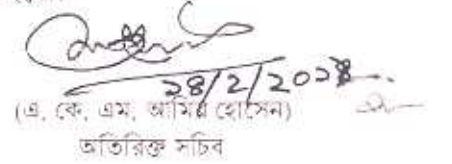 ২৪/2/20২
(এ, কে, এম, আমির হোসেন)
অতিরিক্ত সচিব